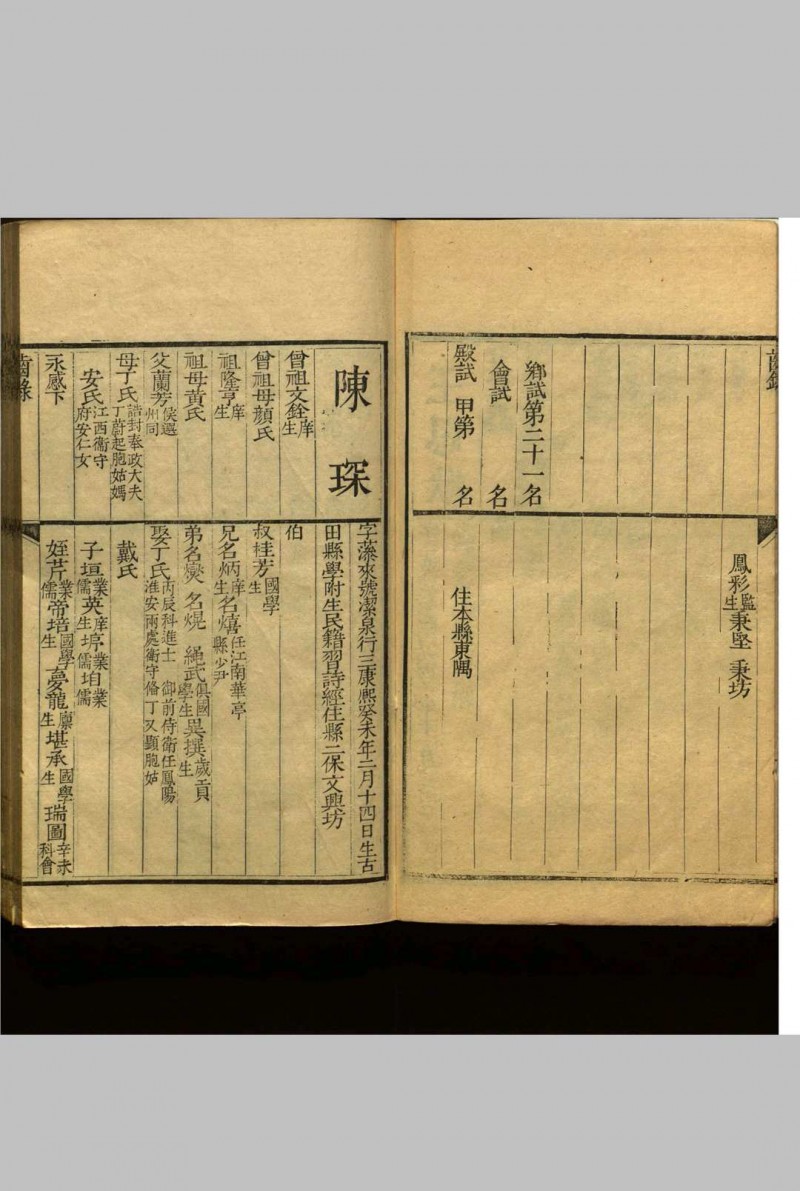 齒錄
鄉試第二十一名
會試 名
殿試 甲第 名
鳳彩監生秉堅 秉坊
住本縣東隅
陳琛
曾祖文銓庠生
曾祖母顏氏
祖隆亨庠生
祖母黃氏
父蘭芳候選州同
母丁氏誥封奉政大夫丁蔚起胞姑媽
安氏江西衞守府安仁女
永感下
字藻來號潔泉行三康熙癸未年二月十四日生古
田縣學附生民籍習詩經住縣二保文興坊
伯
叔桂芳國學生
兄名炳庠生名熺任江南華亭縣少尹
弟名爕 名焜 繩武俱國學生巽撰歲貢生
娶丁氏丙辰科進士 御前侍衛任鳳陽淮安兩處衞守備丁又顯胞姑
戴氏
子垣業儒英庠生埻業儒垍業儒
姪芹業儒帝培國學生 夢龍廪生堪承國學生 瑞圖辛未科會
齒錄